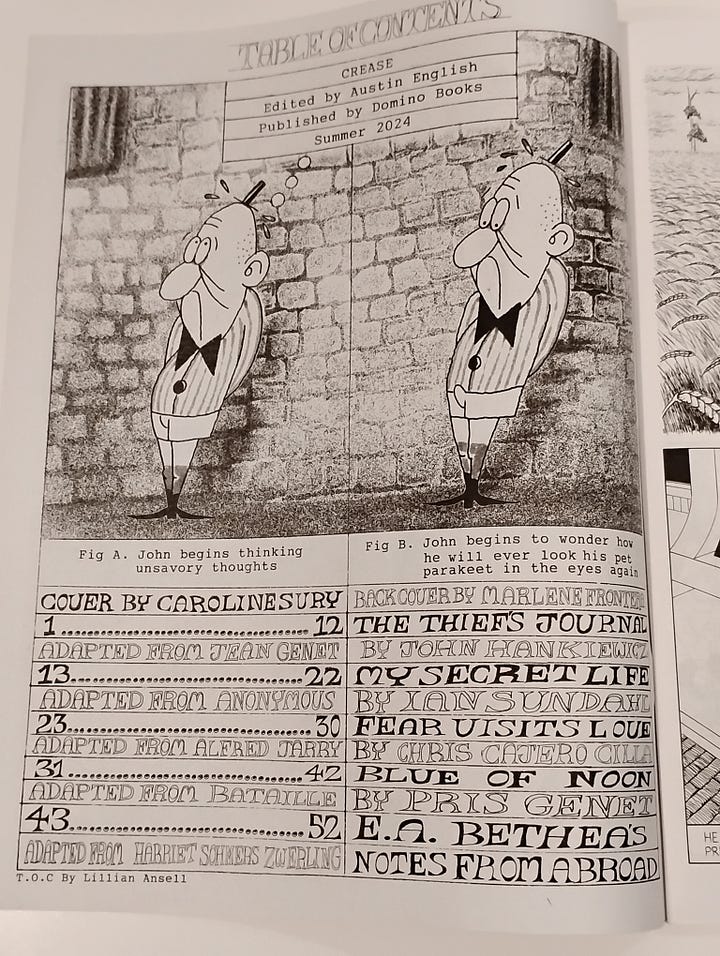 TABLE OF CONTENTS
CREASE
Edited by Austin English
Published by Domino Books
Summer 2024
Fig A. John begins thinking
unsavory thoughts
Fig B. John begins to wonder how
he will ever look his pet
parakeet in the eyes again
COVER BY CAROLINE SURY
BACK COVER BY MARLENE
1 12
THE THIEF'S JOURNAL
ADAPTED FROM JEAN GENET
BY JOHN HANKIEWICZ
13 22
MY SECRET LIFE
ADAPTED FROM ANONYMOUS
BY IAN SUNDAHL
23 30
FEAR VISITS LOVE
ADAPTED FROM ALFRED JARRY
BY CHRIS CAJERO CILLA
31 42
BLUE OF NOON
ADAPTED FROM BATAILLE
BY PRIS GENET
43 52
E.A. BETHEA'S
ADAPTED FROM HARRIET SOHMERS ZWERLING
NOTES FROM ABROAD
T.O.C By Lillian Ansell
HE
PR